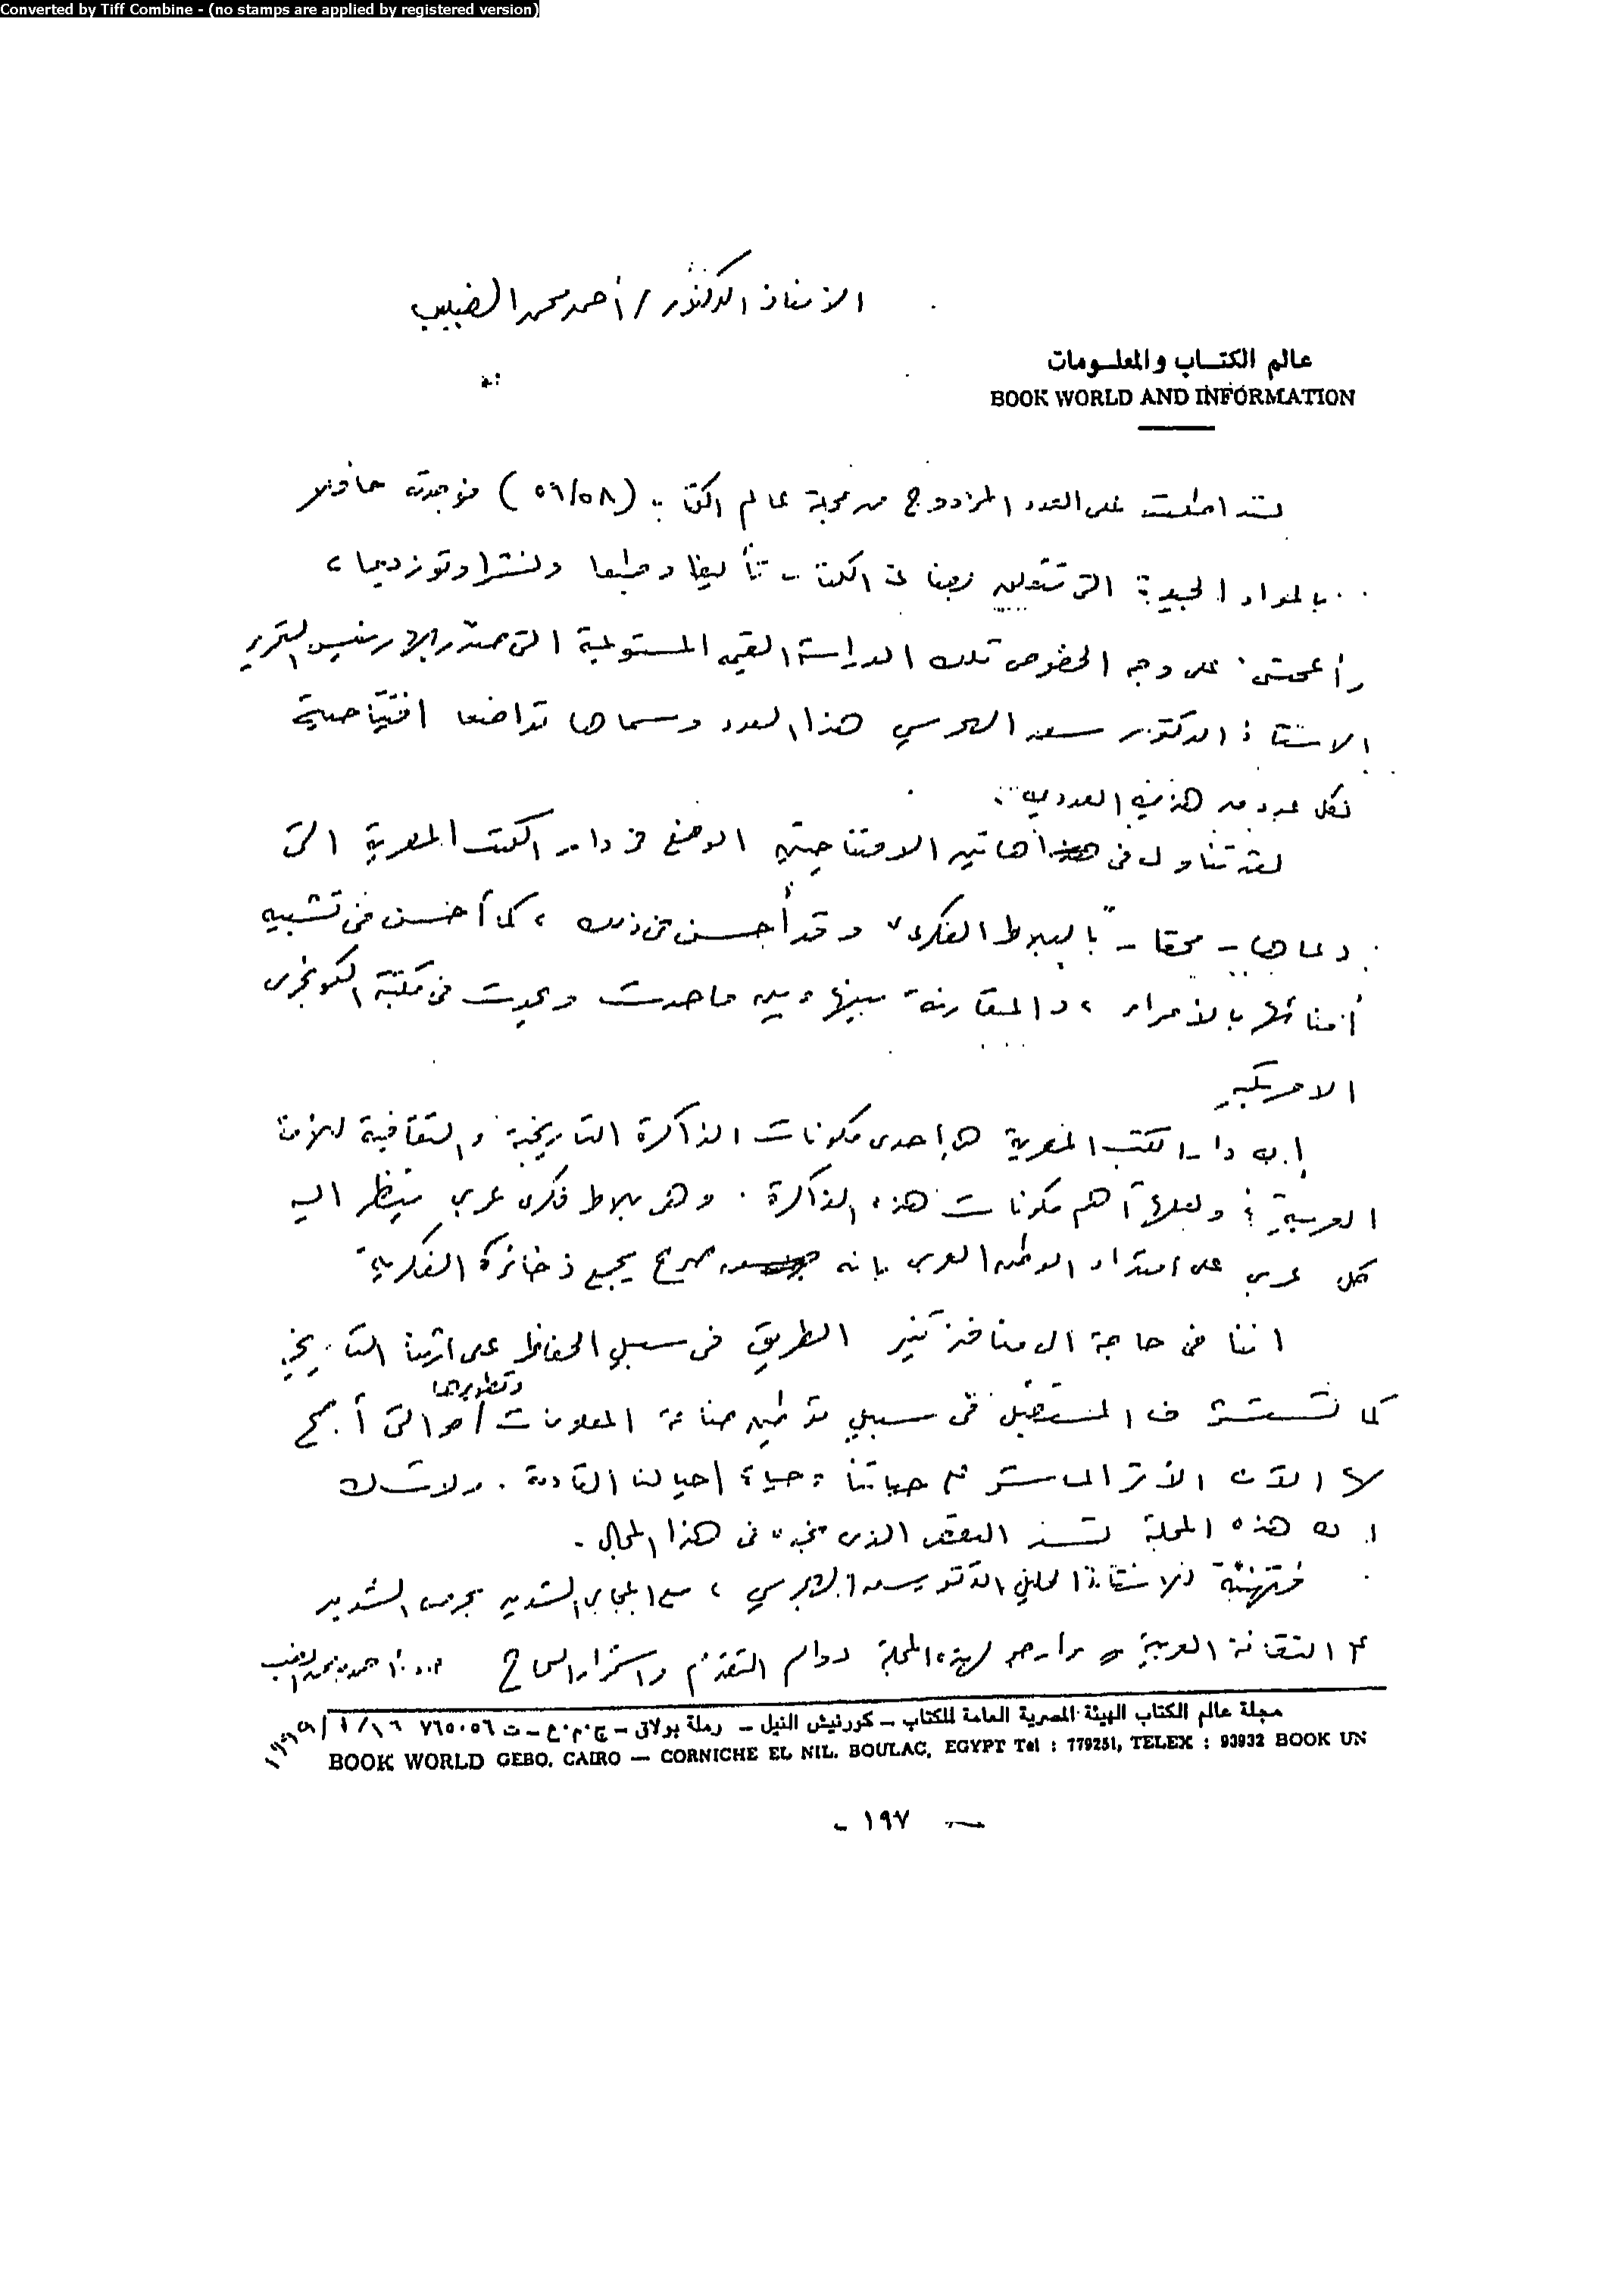 Converted by Tiff Combine - (no stamps are applied by registered version)
الاستاذ الدكتور / أحمد محمد الضبيب
عالم الكتـــاب والمعلـــومات
BOOK WORLD AND INFORMATION
لقد اطلعت على العدد المزدوج من مجلة عالم الكتاب (٥٦/٥٨) فوجدته حافلا
بالمواد الجيدة التى تتعلق بصناعة الكتاب تأليفا وطبعا ونشرا وتوزيعا ،
وأعجبتنى على وجه الخصوص تلك الدراسة القيمة المستوعبة التى صدر بها رئيس التحرير
الاستاذ الدكتور سعد الهجرسي هذا العدد وسماها تواضعا افتتاحية
لكل عدد من هذين العددين .
لقد تناول فى هاتين الافتتاحيتين الوضع فى دار الكتب المصرية التى
دعاها - محقا - "بالبلاط الفكرى" وقد أحسن فى ذلك ، كما أحسن فى تشبيه
أمنائها بالأمراء ، والمقارنة بينها وبين ما حدث ويحدث فى مكتبة الكونجرس
الامريكية
إن دار الكتب المصرية هى إحدى مكونات الذاكرة التاريخية والثقافية للأمة
العربية ؛ ولعلها أهم مكونات هذه الذاكرة . وهى بلاط فكرى عربي ينظر اليه
كل عربي على امتداد الوطن العربى بانه صرح يجمع ذخائره الفكرية
اننا فى حاجة الى منافذ تنير الطريق فى سبيل الحفاظ على تراثنا التاريخي
وتطويرها
كما تستشرف المستقبل فى سبيل توطين صناعة المعلومات / والتى أصبح
لها الآن الأثر المباشر فى حياتنا وحياة اجيالنا القادمة . ولا شك
ان هذه المجلة تسد النقص الذى نجده فى هذا المجال .
فتهنئة للاستاذ الجليل الدكتور سعد الهجرسي ، مع اعجابى الشديد بحرصه الشديد
الثقافة العربية وأرجو لهذه المجلة دوام التقدم واستمرار النجاح أ.د. أحمد محمد الضبيب
مجلة عالم الكتاب الهيئة المصرية العامة للكتاب – كورنيش النيل – رملة بولاق – ج.م.ع – ت ٧٦٥٠٥٦
BOOK WORLD GEBO, CAIRO — CORNICHE EL NIL. BOULAC, EGYPT Tel : 779251, TELEX : 93932 BOOK UN
- ١٩٧ -